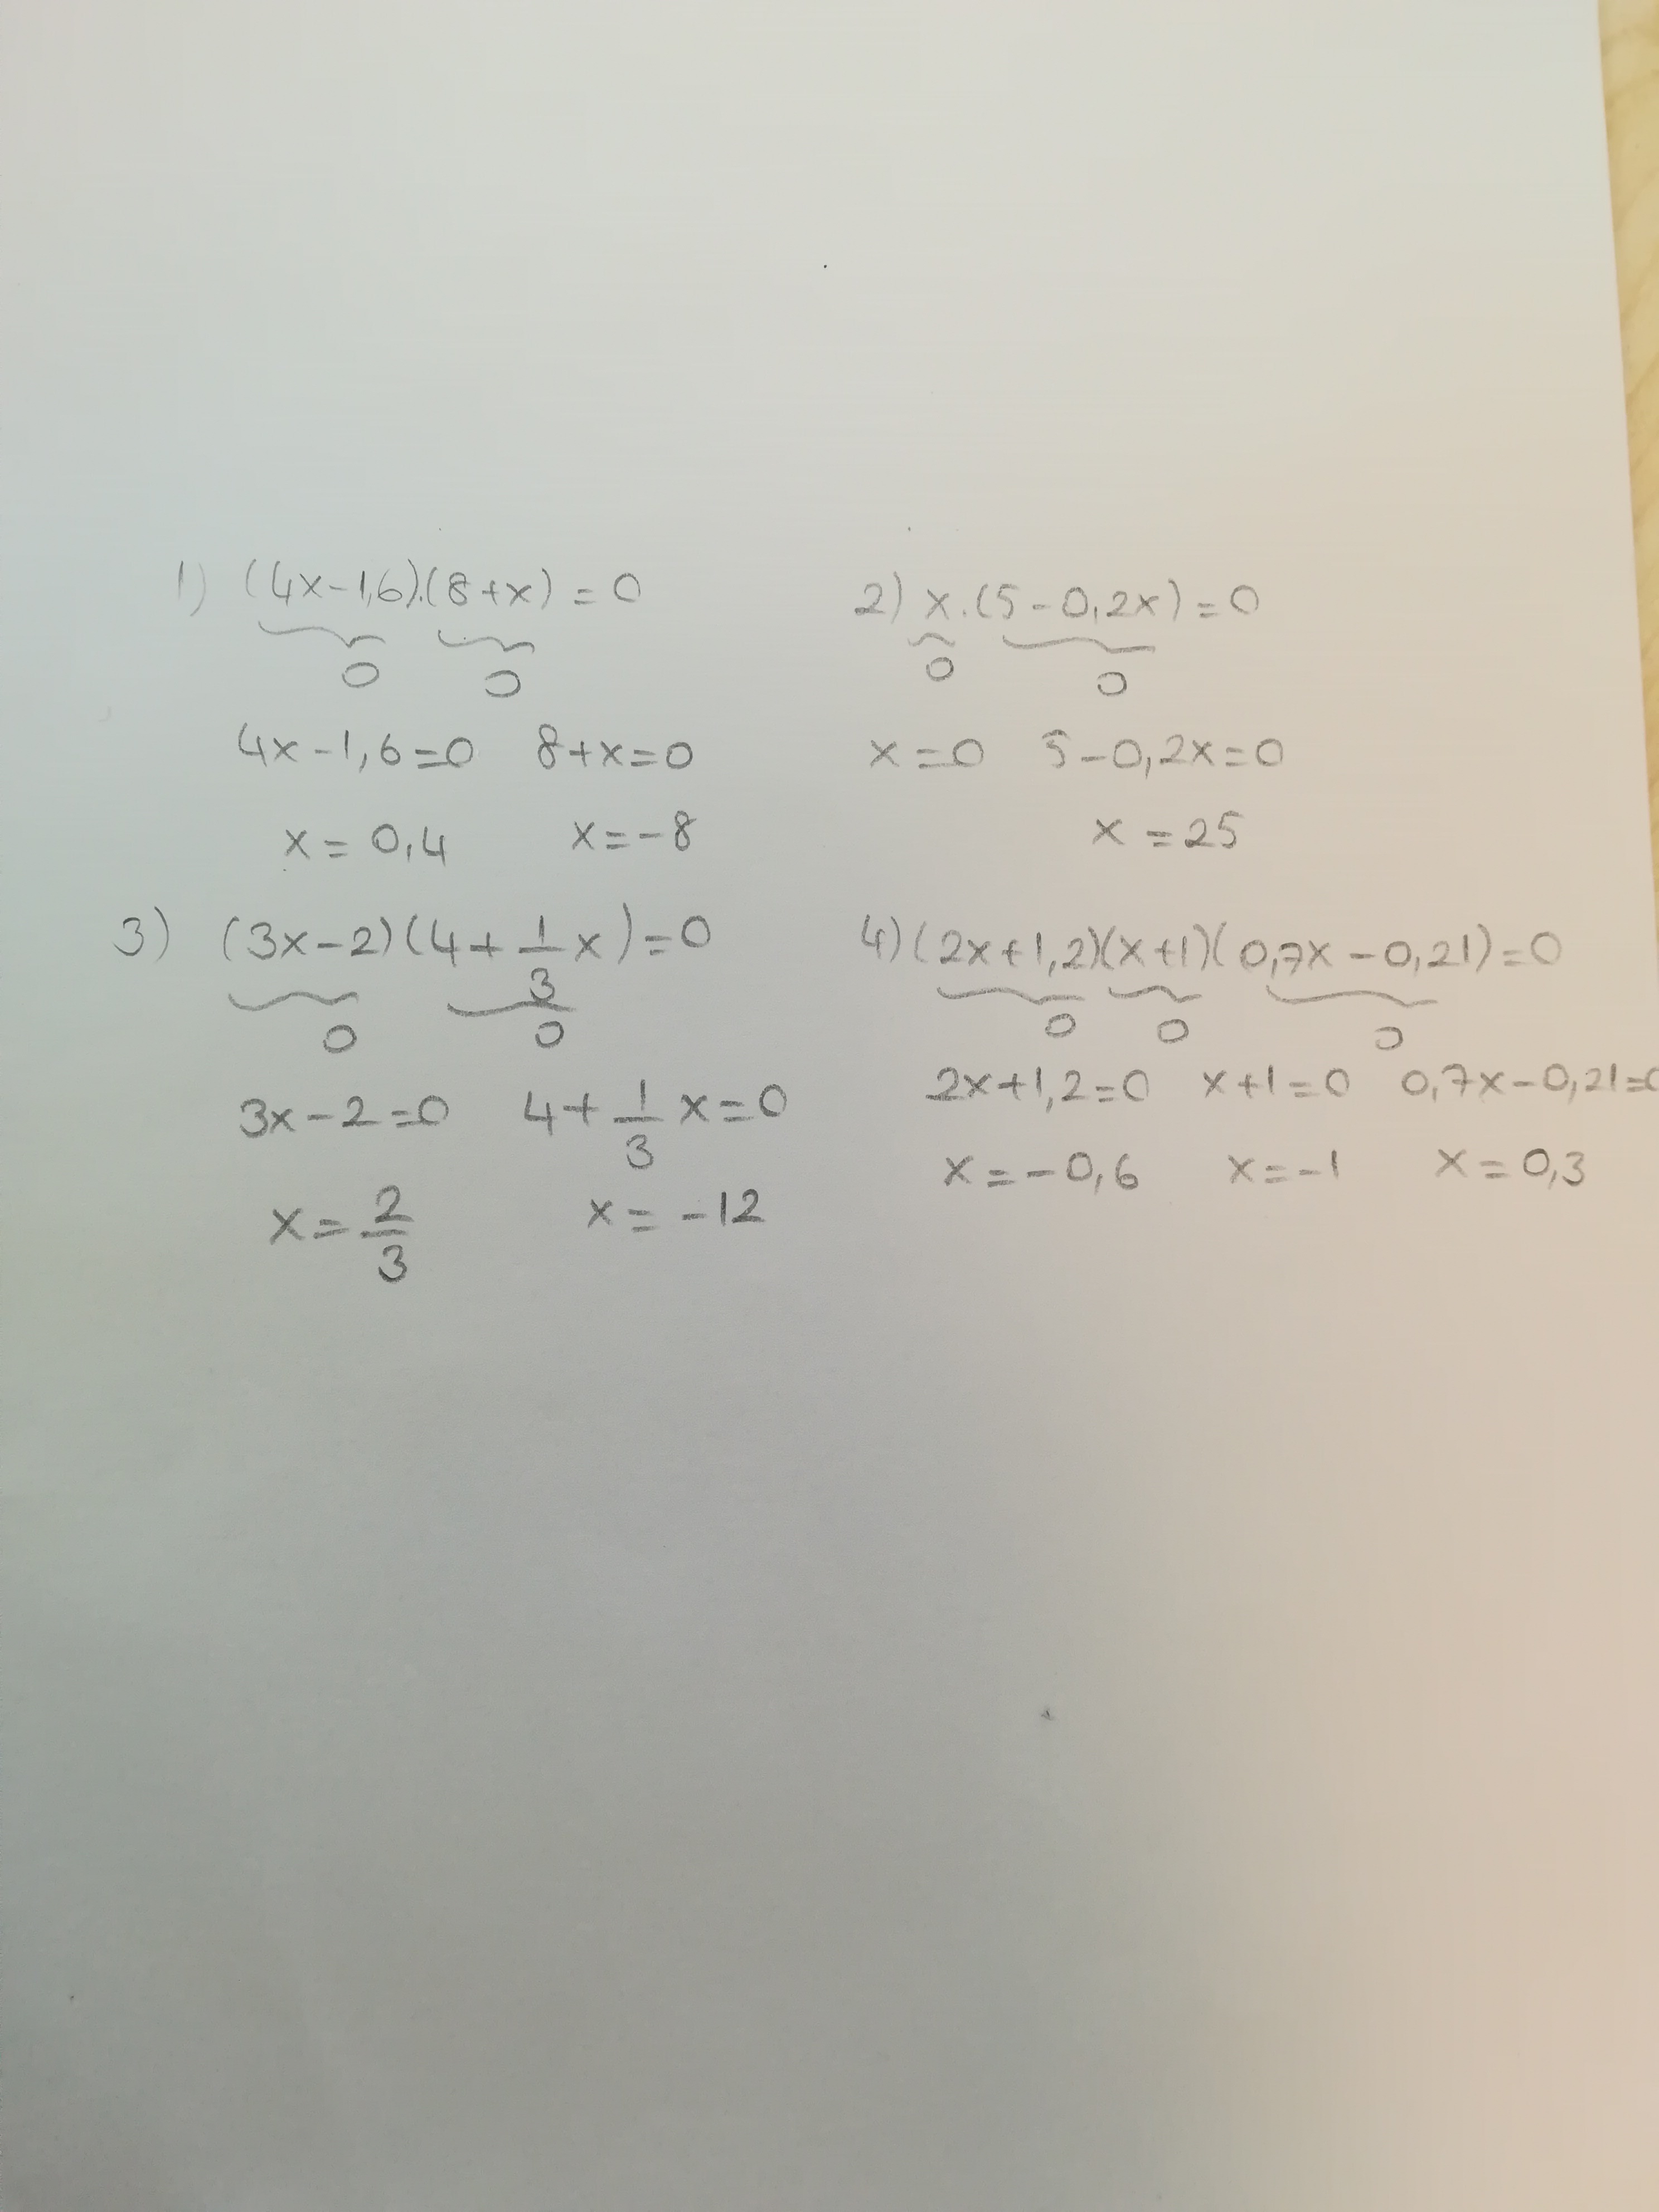 1) (4x-1,6).(8+x) = 0
0 0
4x-1,6=0 8+x=0
x= 0,4 x=-8
2) x.(5-0,2x)=0
0 0
x=0 5-0,2x=0
x=25
3) (3x-2)(4+1/3x)=0
0 0
3x-2=0 4+1/3x=0
x=2/3 x=-12
4)(2x+1,2)(x+1)(0,7x-0,21)=0
0 0 0
2x+1,2=0 x+1=0 0,7x-0,21=0
x=-0,6 x=-1 x=0,3